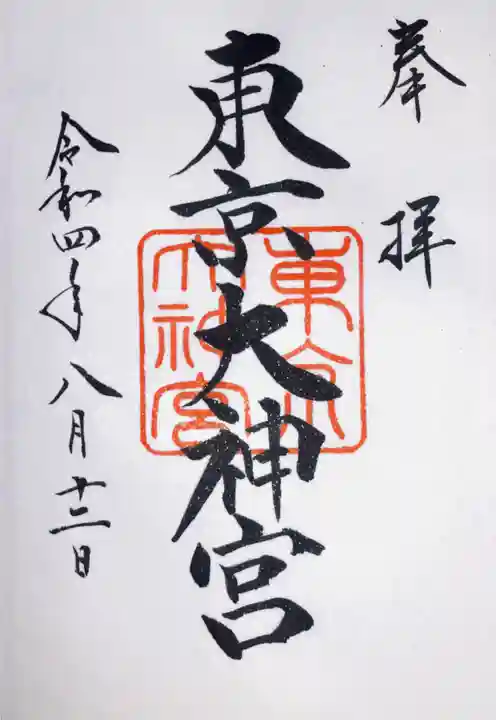 奉拝
東京大神宮
東京
大神宮
令和四年八月十三日